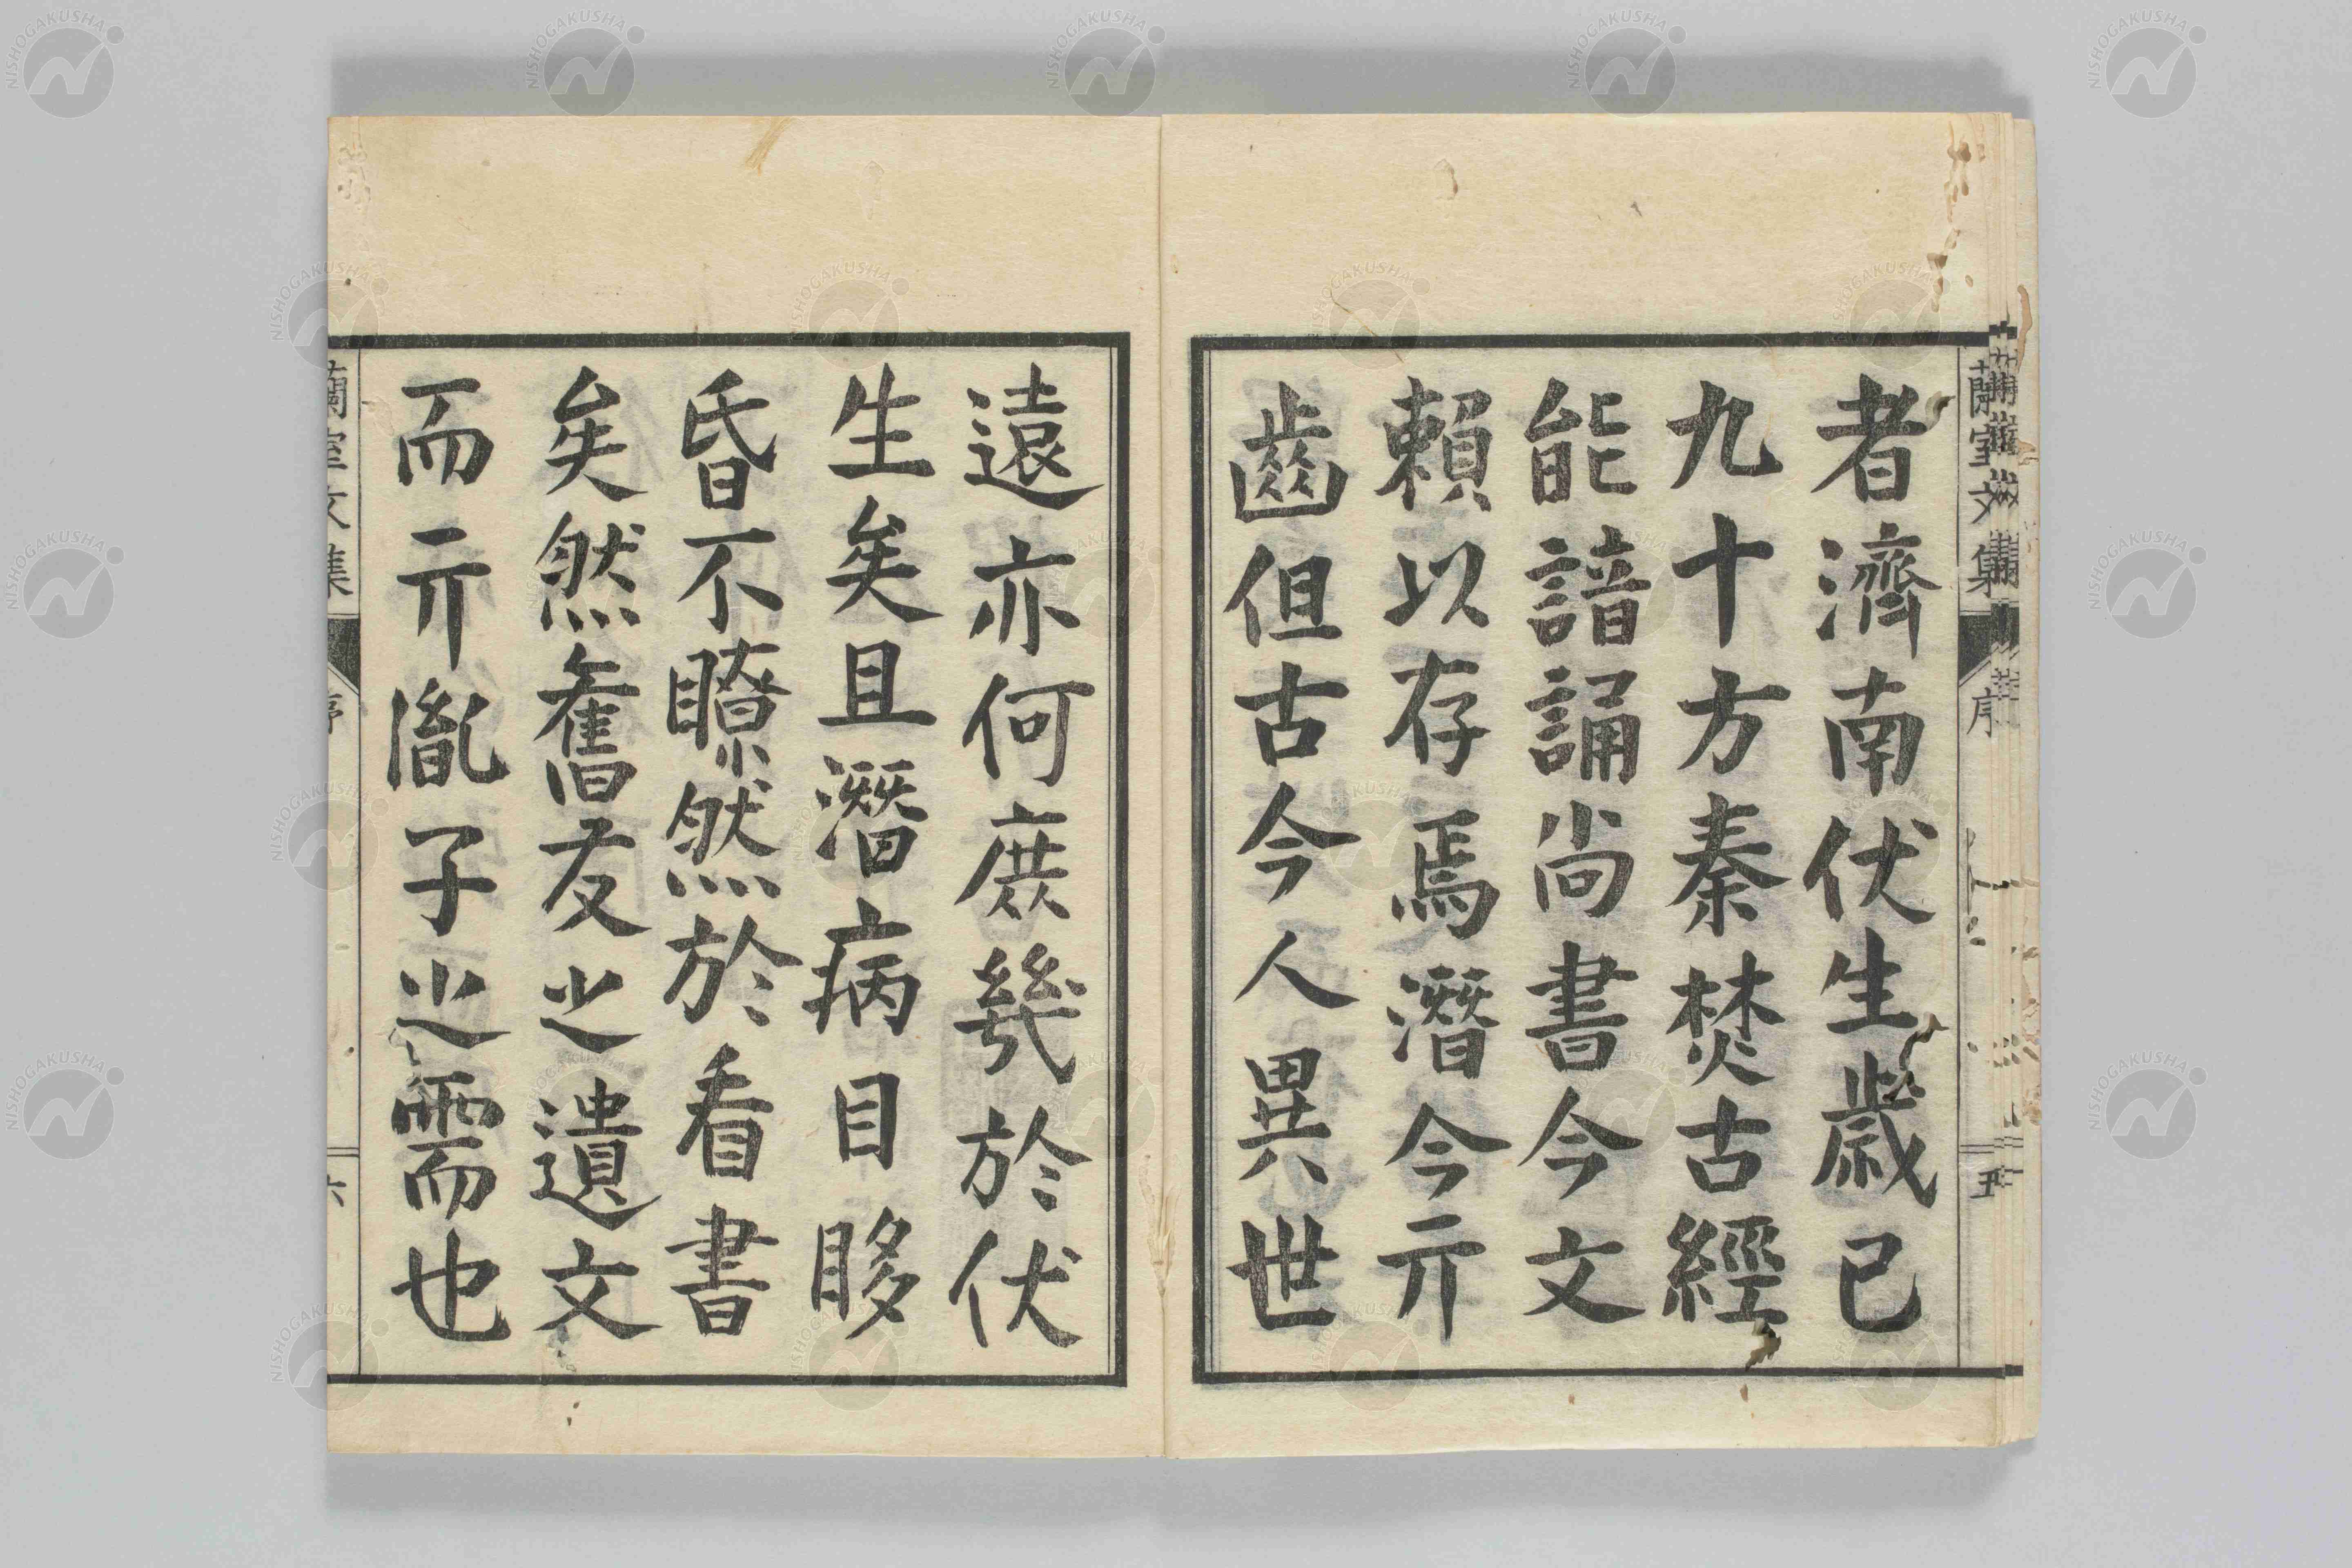 蘭室文集 序 五
者濟南伏生歲已
九十方秦焚古經
能諳誦尚書今文
賴以存焉潛今亓
齒但古今人異世
遠亦何庶幾於伏
生矣且潛病目眵
昏不瞭然於看書
矣然舊友之遺文
而亓胤子之需也
蘭室文集 序 六
NISHOGAKUSHA